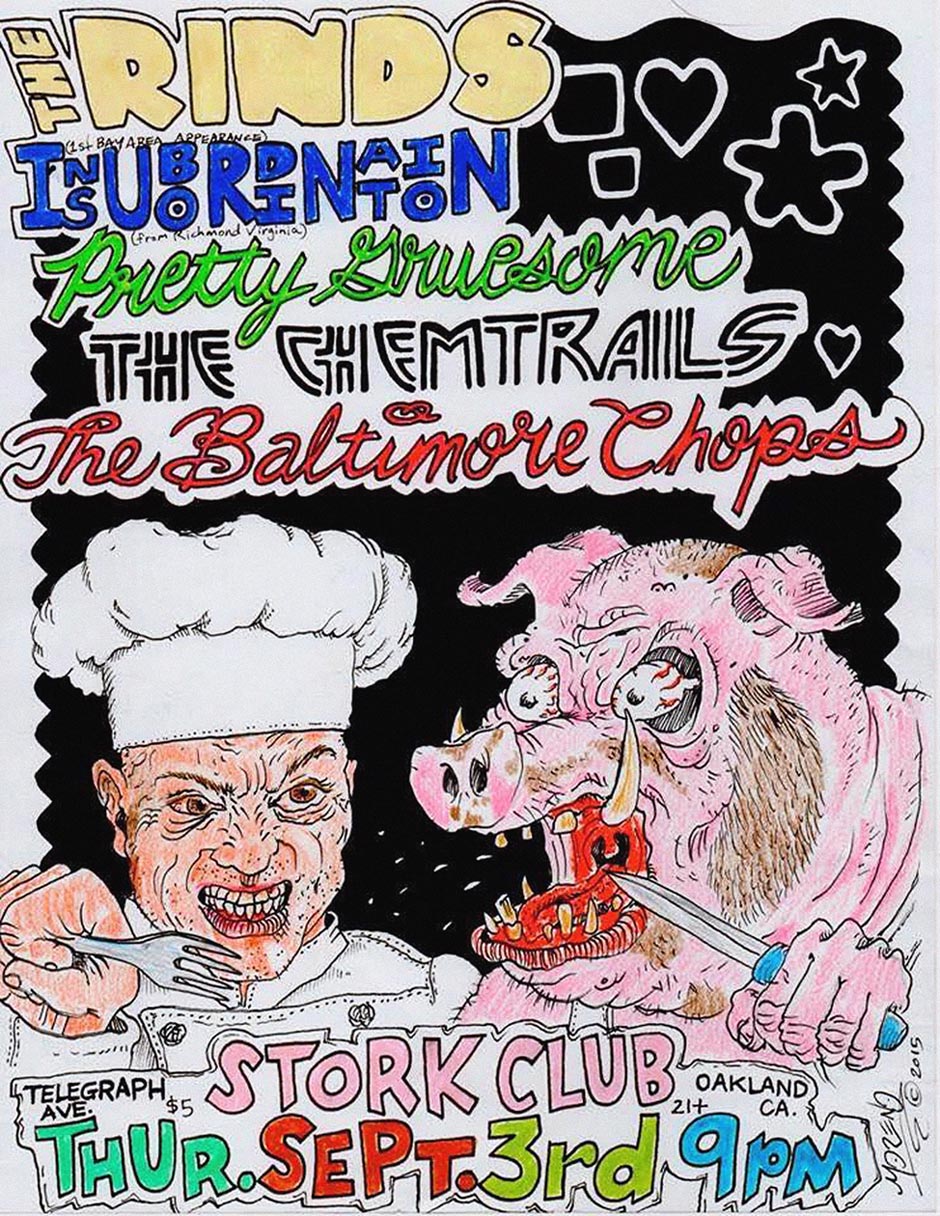 THE RINDS
(1st BAY AREA APPEARANCE)
INSUBORDINATION
(from Richmond Virginia)
Pretty Gruesome
THE CHEMTRAILS
The Baltimore Chops
STORK CLUB
TELEGRAPH AVE.
$5
21+
OAKLAND CA.
THUR. SEPT. 3rd 9PM
MORENO © 2015